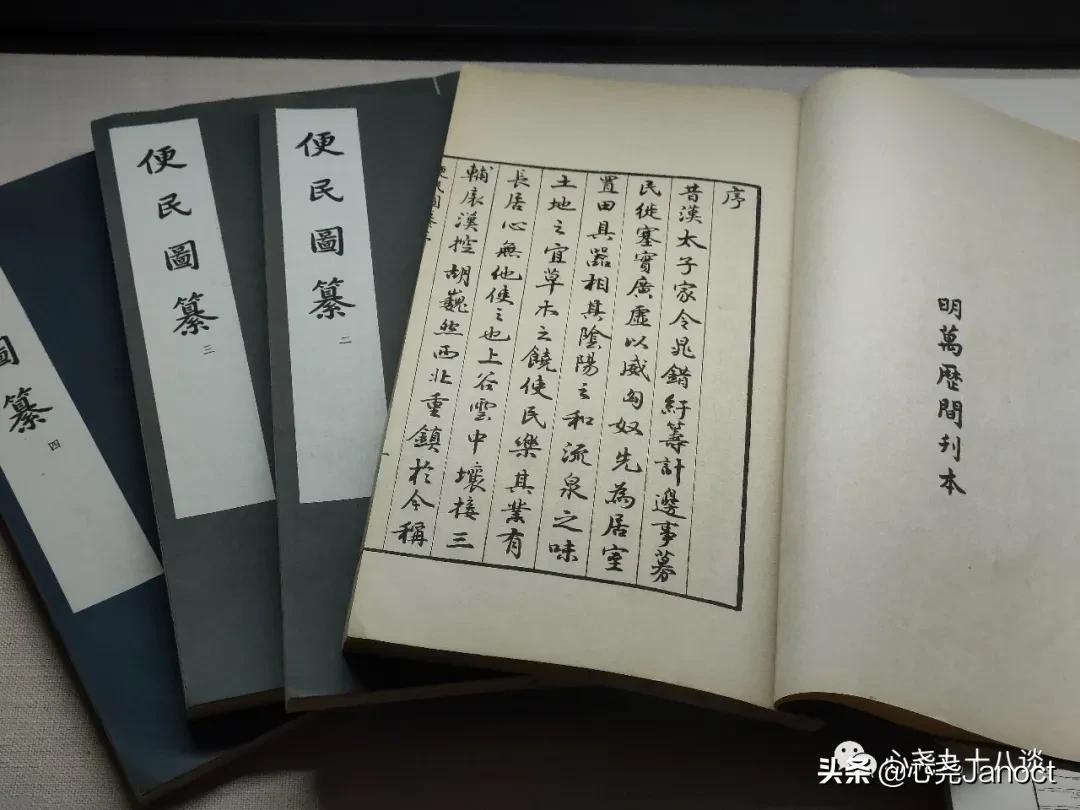 明萬歷間刊本
序
昔漢太子家令晁錯紆籌計邊事募
民徙塞實廣虛以威匈奴先為居室
置田具器相其陰陽之和流泉之味
土地之宜草木之饒使民樂其業有
長居心無他使之也上谷雲中壤接三
輔扆漠控胡巍然西北重鎮於今稱
便民圖纂
便民圖纂 二
便民圖纂 三
圖纂 四
头条@心尧Janoct